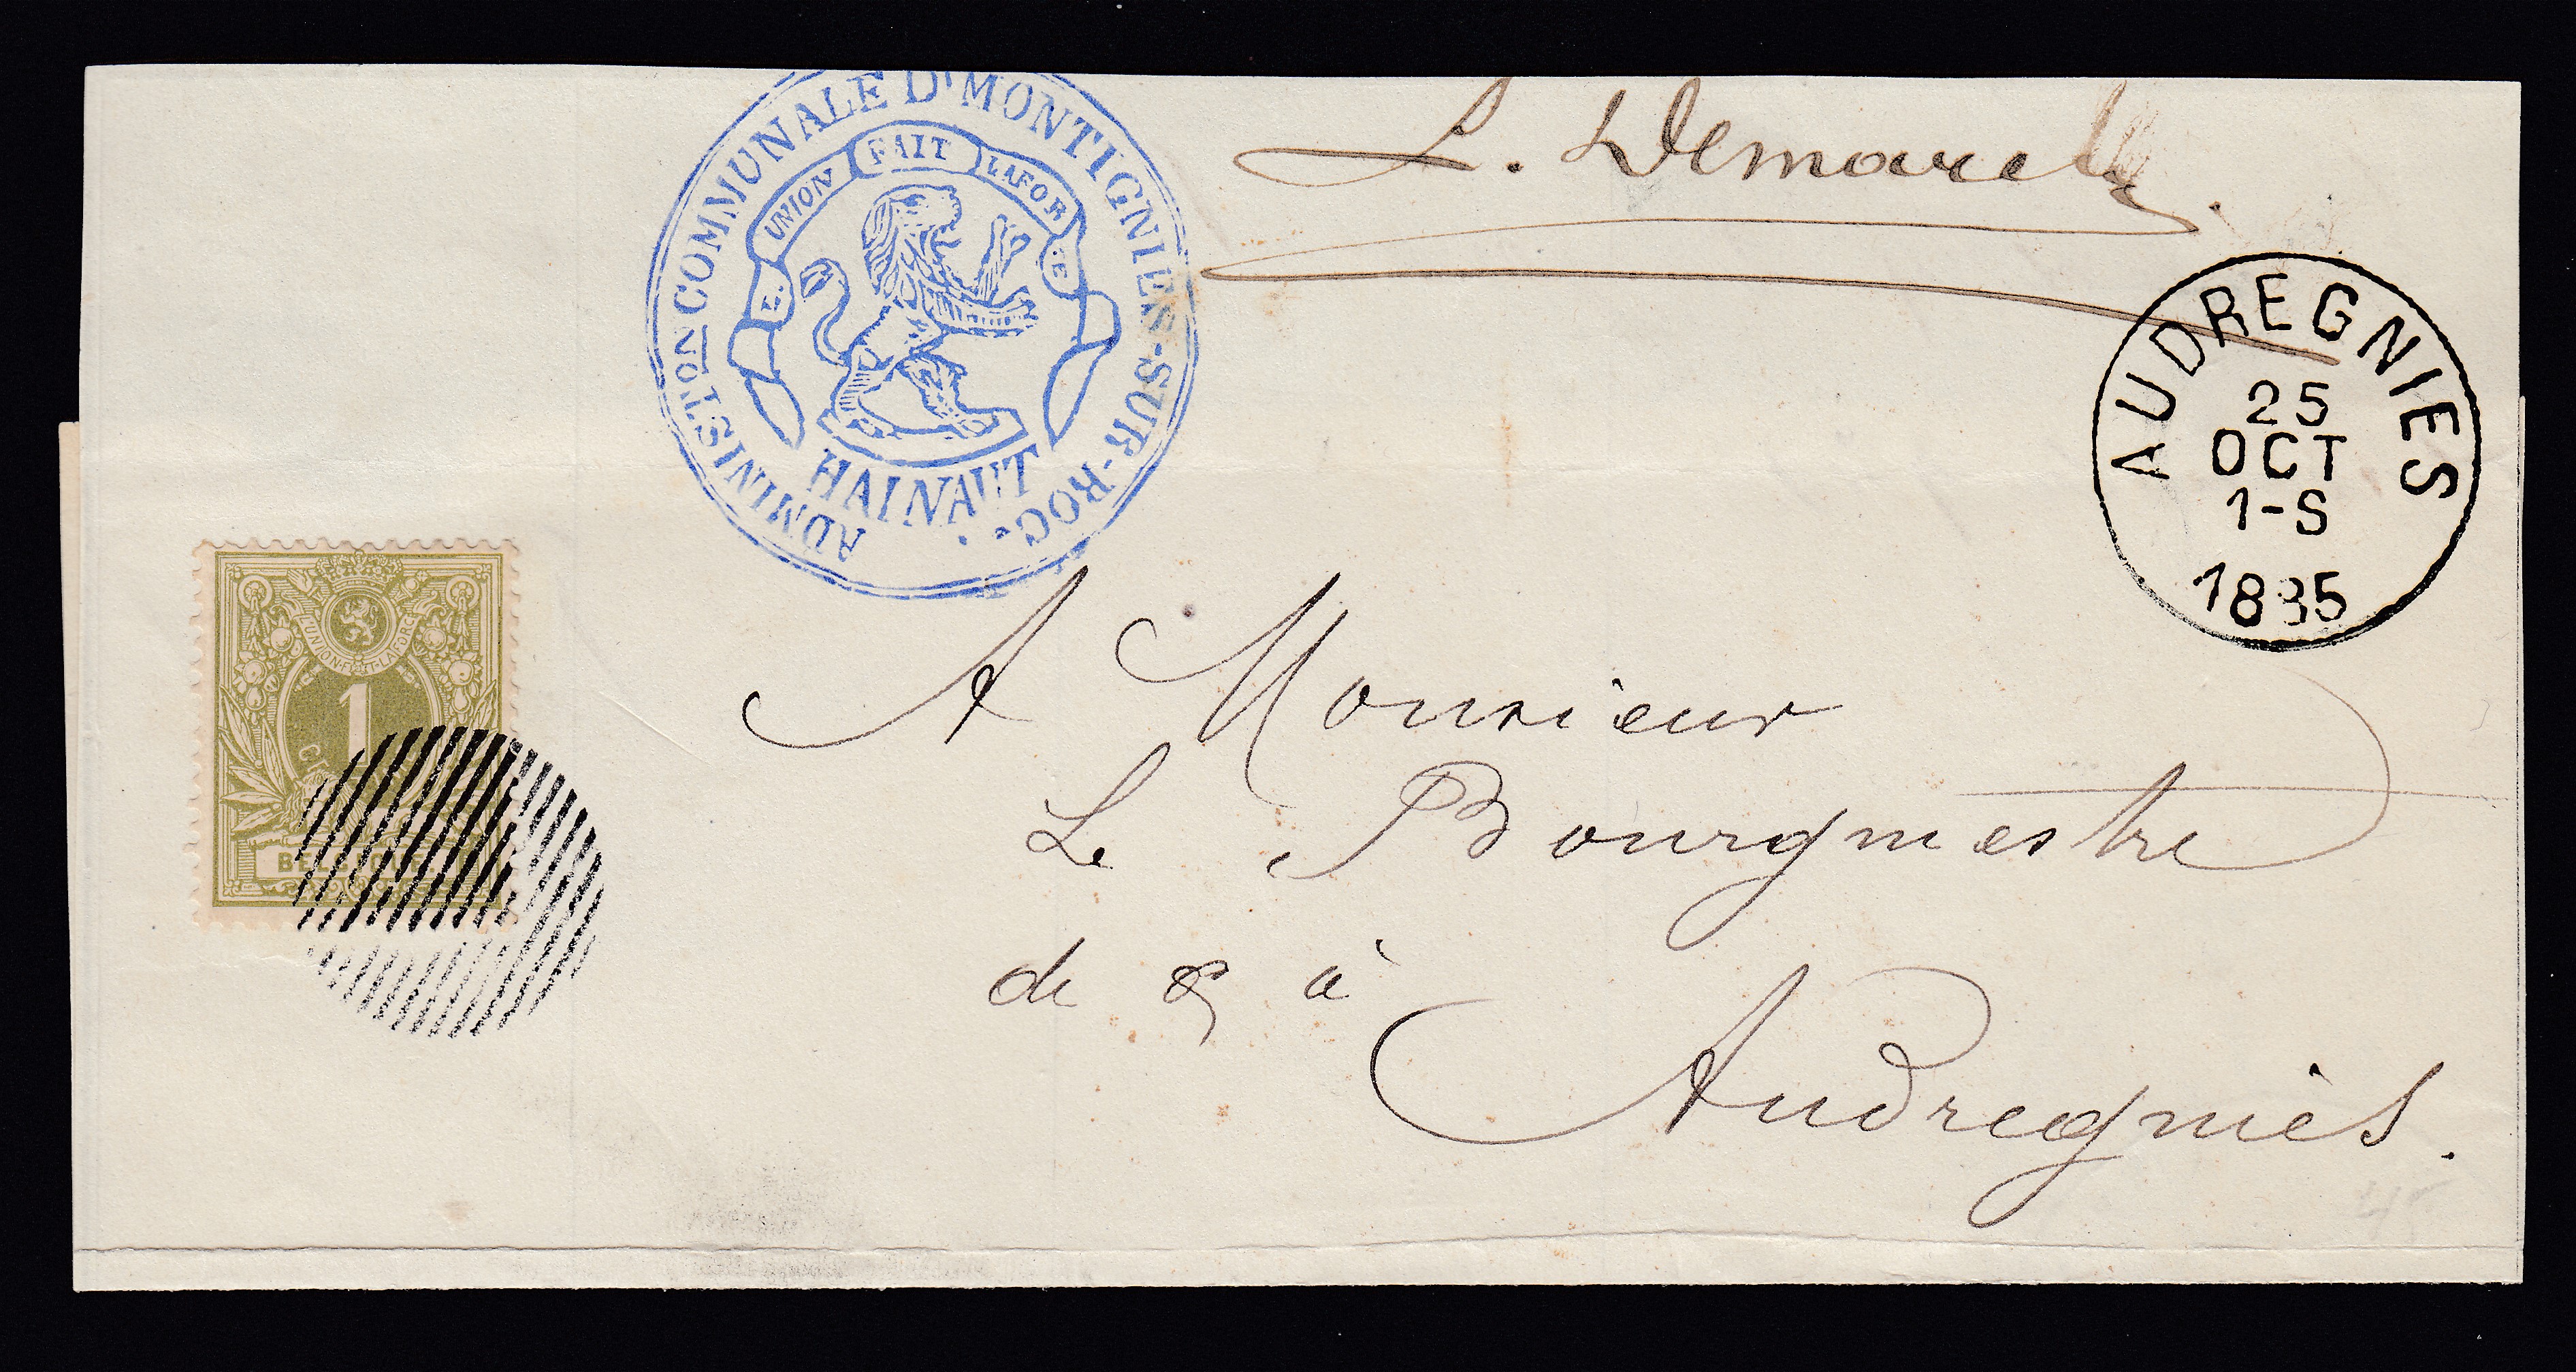 ADMINISTON COMMUNALE D'MONTIGNIES-SUR-ROC.
L'UNION FAIT LA FORCE
HAINAUT
L.
AUDREGNIES
25
OCT
1-S
1885
L'UNION FAIT LA FORCE
1
A Monsieur
Le Bourgmestre
de & à
Audregnies.